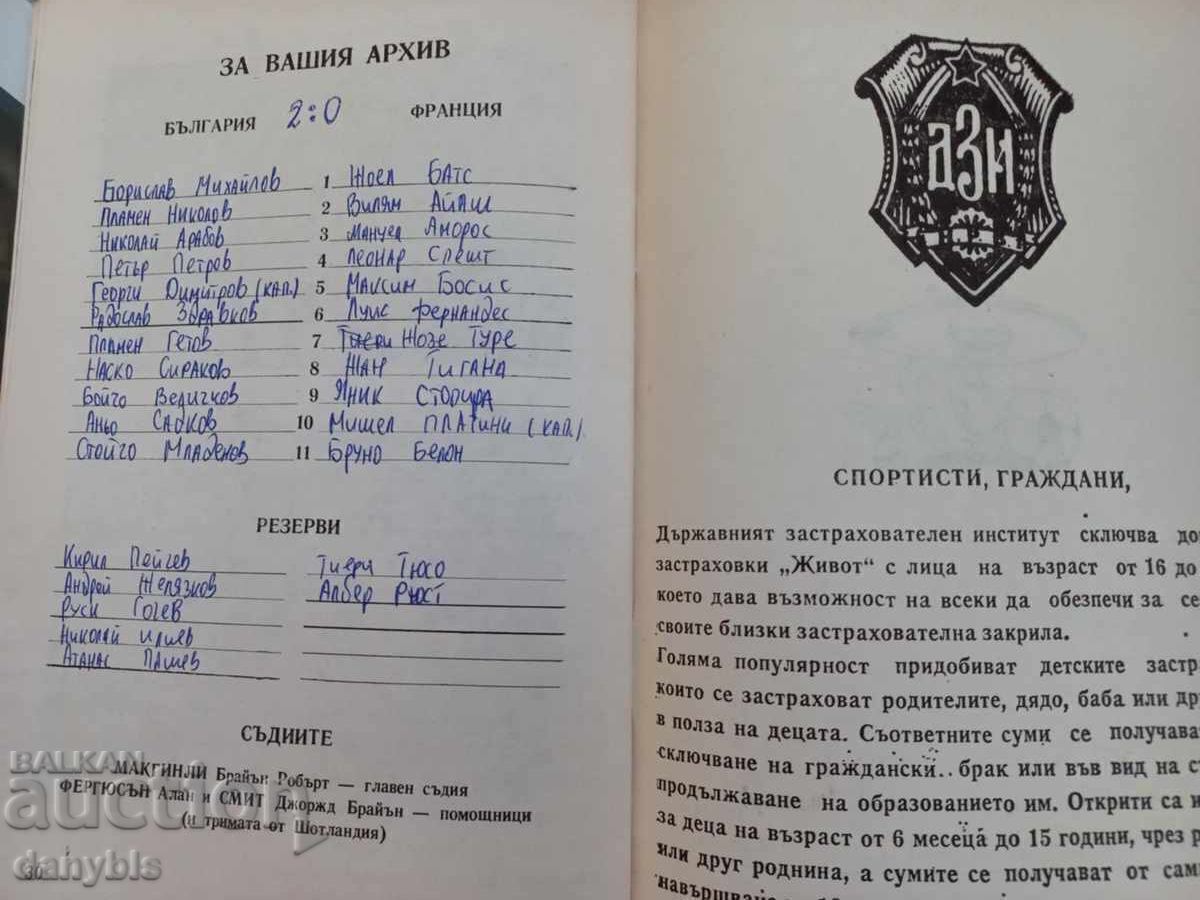 ЗА ВАШИЯ АРХИВ
БЪЛГАРИЯ 2:0 ФРАНЦИЯ
Борислав Михайлов 1 Жоел Батс
Пламен Николов 2 Вилям Айаш
Николай Арабов 3 Мануел Аморос
Петър Петров 4 Леонар Спешт
Георги Димитров (кап.) 5 Максим Босис
Радослав Здравков 6 Луис Фернандес
Пламен Гетов 7 Жозе Туре
Наско Сираков 8 Жан Тигана
Бойчо Величков 9 Яник Стопира
Аньо Садков 10 Мишел Платини (кап.)
Стойчо Младенов 11 Бруно Белон
РЕЗЕРВИ
Кирил Пейчев Тиери Тюсо
Андрей Желязков Албер Рюст
Руси Гочев
Николай Илиев
Атанас Пашев
СЪДИИТЕ
МАКГИНЛИ Брайън Робърт — главен съдия
ФЕРГЮСЪН Алан и СМИТ Джоржд Брайън — помощници
(и тримата от Шотландия)
30
BALKAN
auction
danybls
ДЗИ
СПОРТИСТИ, ГРАЖДАНИ,
Държавният застрахователен институт сключва до
застраховки „Живот“ с лица на възраст от 16 до
което дава възможност на всеки да обезпечи за се
своите близки застрахователна закрила.
Голяма популярност придобиват детските застра
които се застраховат родителите, дядо, баба или др
в полза на децата. Съответните суми се получава
сключване на граждански.. брак или във вид на с
продължаване на образованието им. Открити са и
за деца на възраст от 6 месеца до 15 години, чрез р
или друг роднина, а сумите се получават от сам
навършване